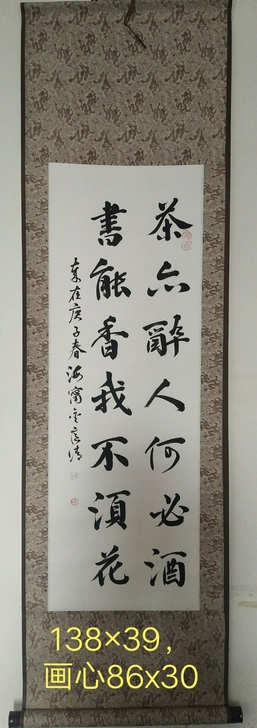 茶亦醉人何必酒
書能香我不須花
歲在庚子春海寧
138×39，
画心86x30